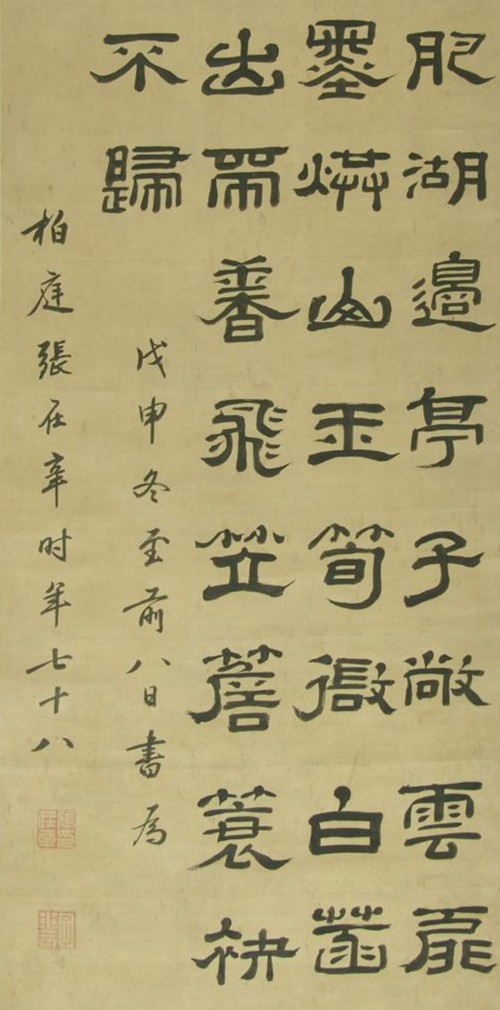 肥湖邊亭子敞雲扉
墨山玉筍白
出番飛笠蓑袂
不歸
戊申冬至前八日書為
柏庭張在辛时年七十八